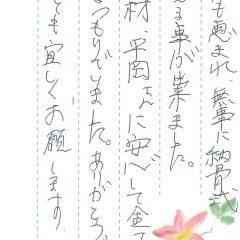 も恵まれ、無事に納骨式
る事が業ました。
材、平岡さんに安心して全て
つもりでいました。ありがとうご
ても宜しくお願します